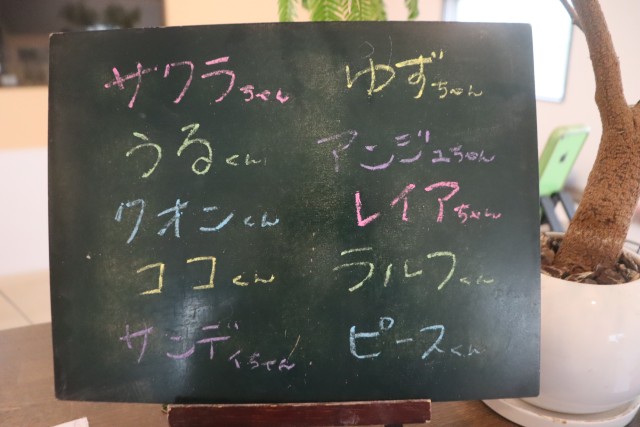 サクラちゃん ゆずちゃん
うるくん アンジュちゃん
クオンくん レイアちゃん
ココくん ラルフくん
サンディちゃん ピースくん